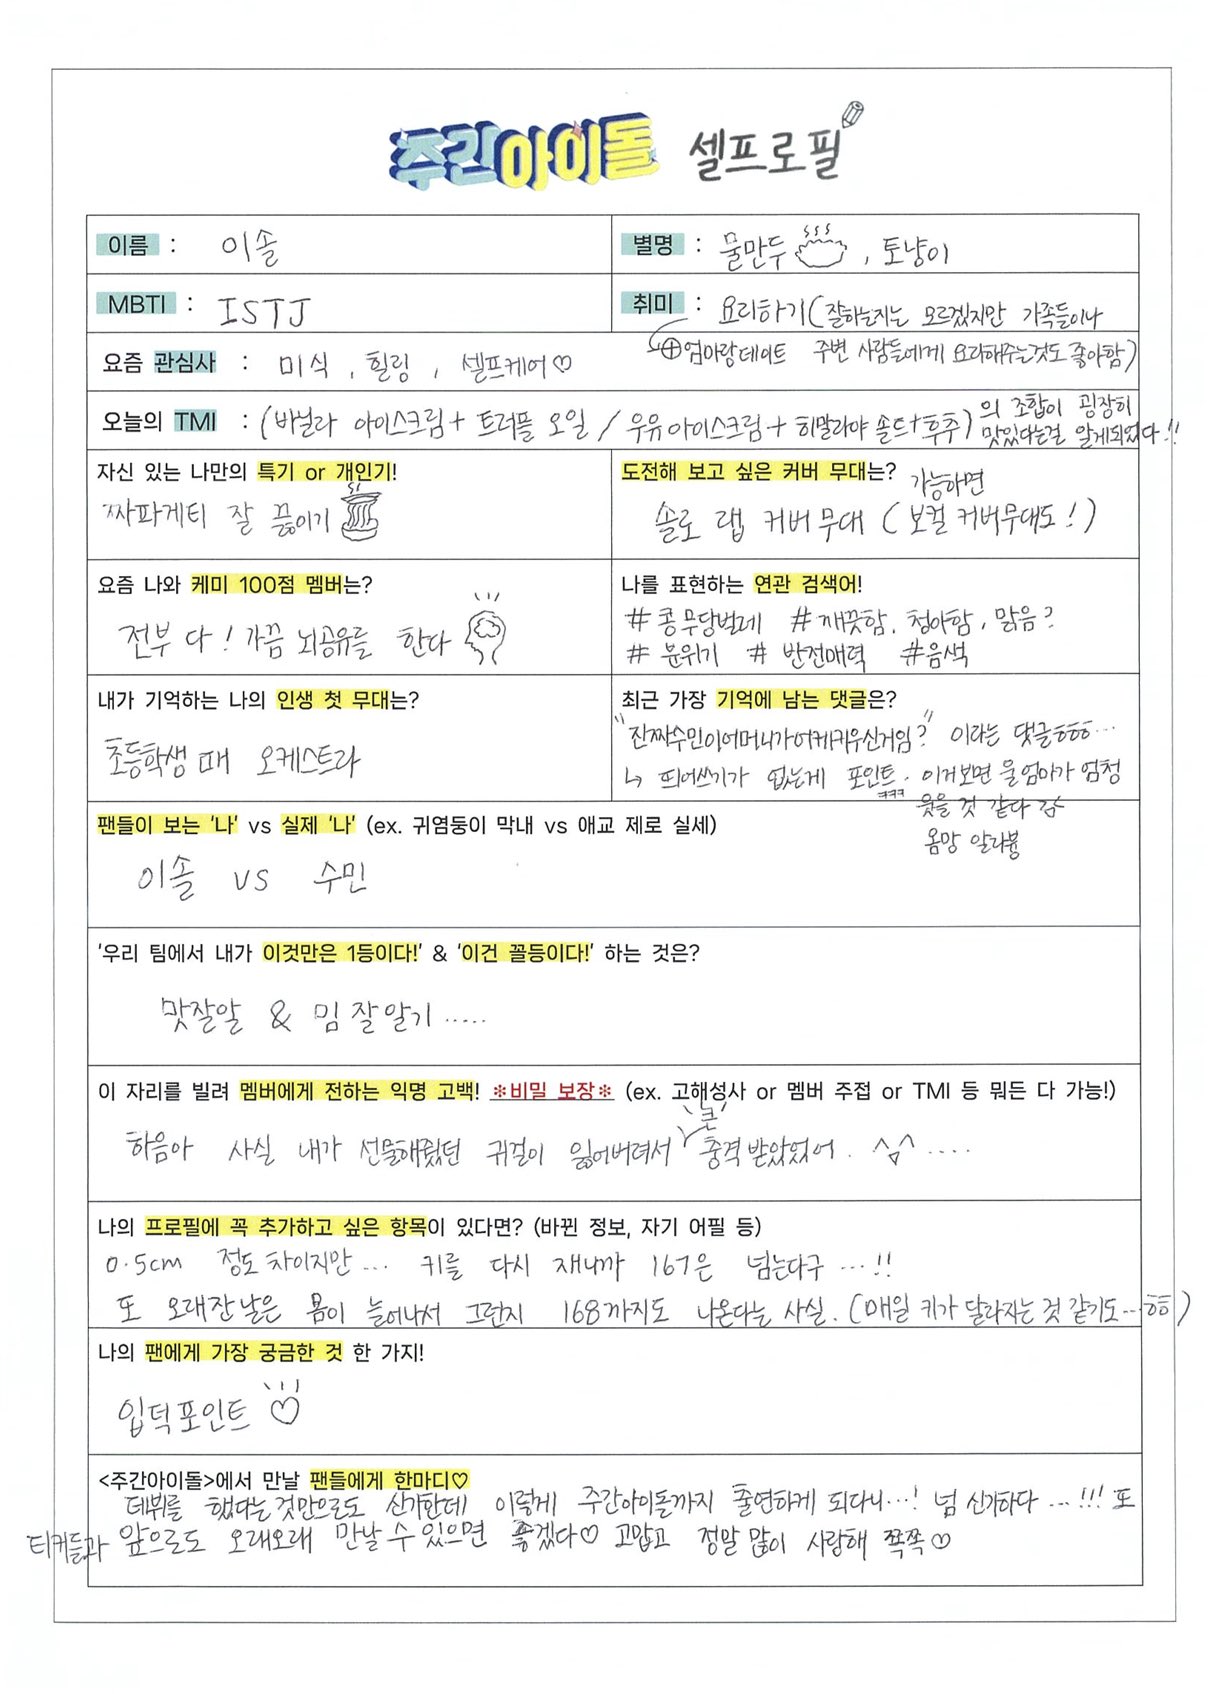 주간아이돌 셀프로필
이름 : 이솔
별명 : 물만두, 토냥이
MBTI : ISTJ
취미 : 요리하기(잘하는지는 모르겠지만 가족들이나
주변 사람들에게 요리해주는것도 좋아함)
⊕엄마랑데이트
요즘 관심사 : 미식, 힐링, 셀프케어♡
오늘의 TMI : (바닐라 아이스크림+ 트러플 오일 / 우유아이스크림+ 히말라야 솔트+후추)의 조합이 굉장히
맛있다는걸 알게되었다!!
자신 있는 나만의 특기 or 개인기!
짜파게티 잘 끓이기
도전해 보고 싶은 커버 무대는?
가능하면
솔로 랩 커버 무대 ( 보컬 커버무대도! )
요즘 나와 케미 100점 멤버는?
전부 다! 가끔 뇌공유를 한다
나를 표현하는 연관 검색어!
# 콩무당벌레 # 깨끗함, 청아함, 맑음?
# 분위기 # 반전매력 #음색
내가 기억하는 나의 인생 첫 무대는?
초등학생 때 오케스트라
최근 가장 기억에 남는 댓글은?
"진짜수민이어머니가어케키우신거임?" 이라는 댓글ㅎㅎㅎ...
↳ 띄어쓰기가 없는게 포인트. 이거보면 울엄마가 엄청
ㅋㅋㅋ
웃을 것 같다
옴망 알라뷸
팬들이 보는 '나' vs 실제 '나' (ex. 귀염둥이 막내 vs 애교 제로 실세)
이솔 vs 수민
'우리 팀에서 내가 이것만은 1등이다!' & '이건 꼴등이다!' 하는 것은?
맛잘알 & 밈 잘알기 .....
이 자리를 빌려 멤버에게 전하는 익명 고백! *비밀 보장* (ex. 고해성사 or 멤버 주접 or TMI 등 뭐든 다 가능!)
큰
하음아 사실 내가 선물해줬던 귀걸이 잃어버려서 충격받았었어. ^ㅅ^ ....
나의 프로필에 꼭 추가하고 싶은 항목이 있다면? (바뀐 정보, 자기 어필 등)
0.5cm 정도 차이지만... 키를 다시 재니까 167은 넘는다구 ...!!
또 오래잔날은 몸이 늘어나서 그런지 168까지도 나온다는 사실. (매일 키가 달라지는 것 같기도...ㅎㅎ)
나의 팬에게 가장 궁금한 것 한 가지!
입덕포인트 ♡
<주간아이돌>에서 만날 팬들에게 한마디♡
데뷔를 했다는것만으로도 신기한데 이렇게 주간아이돌까지 출연하게 되다니...! 넘 신기하다 ...!!! 또
티커들과 앞으로도 오래오래 만날 수 있으면 좋겠다♡ 고맙고 정말 많이 사랑해 쪽쪽♡